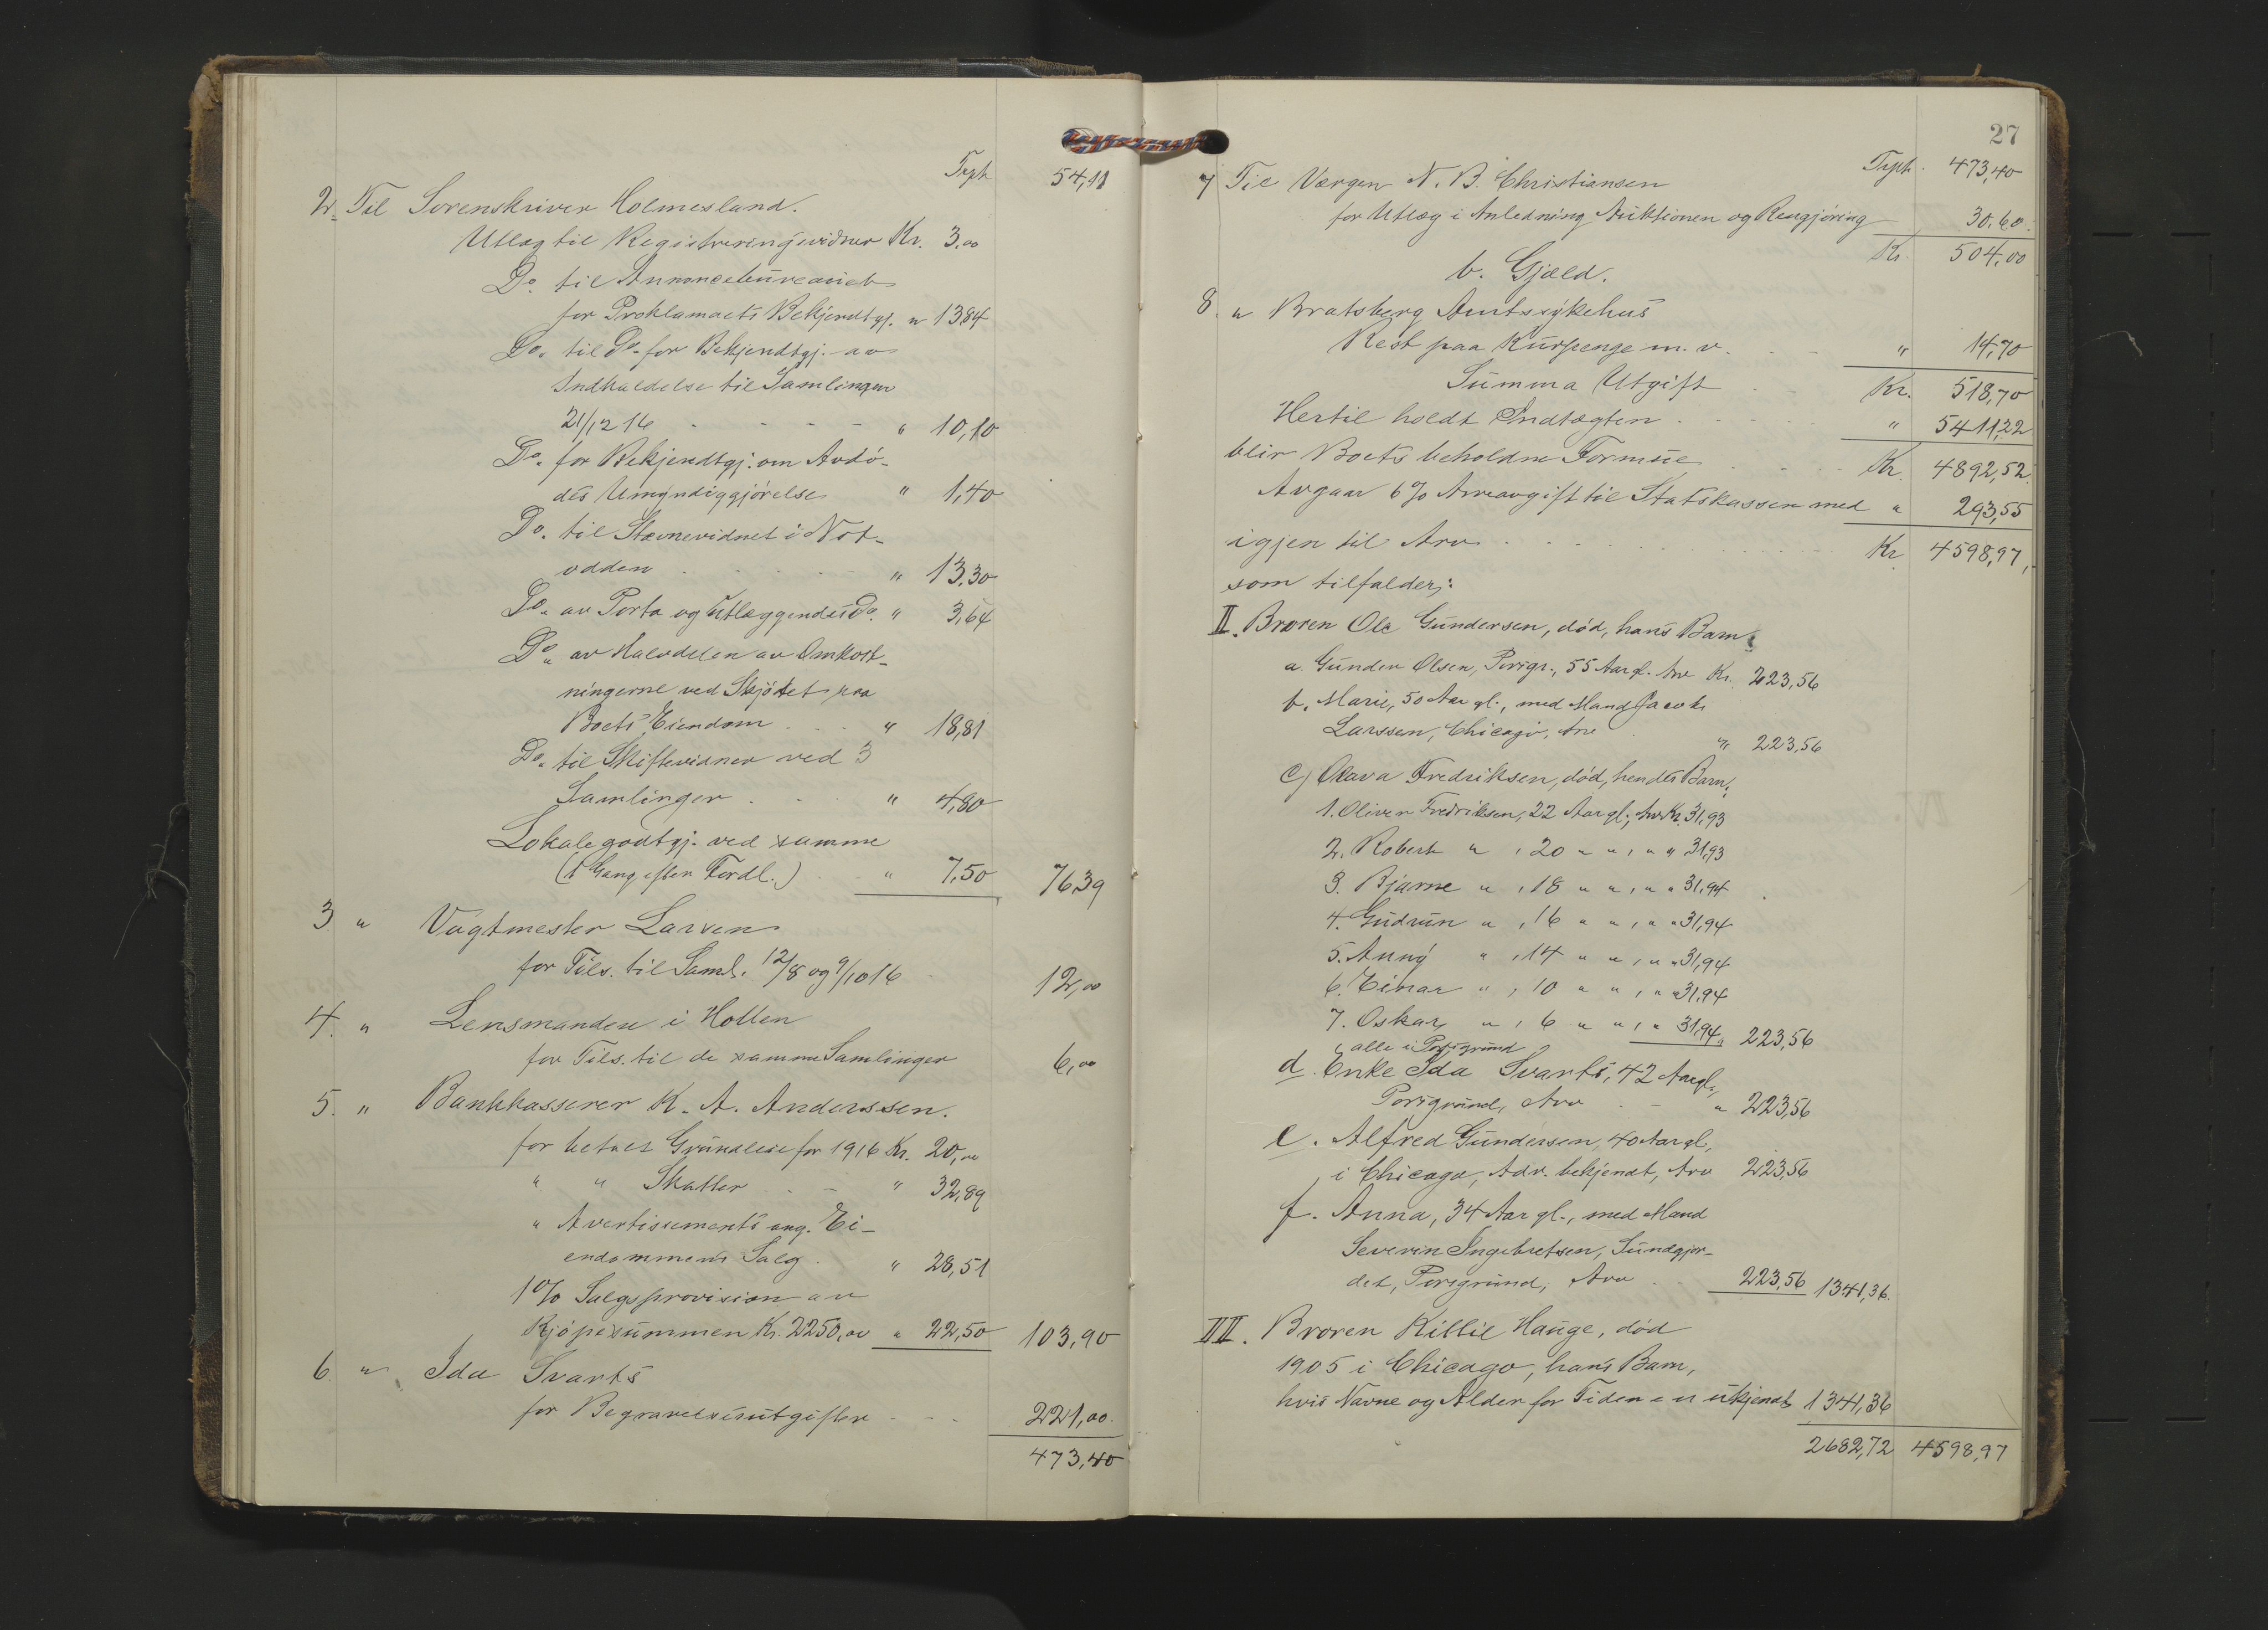 Trpt 54,11
2. Til Sorenskriver Holmesland.
Utlæg til Registreringsvidner Kr. 3,00
Do. til Annoncebureauet
for Proklamaets Bekjendtgj. " 13,84
Do. til Do. for Bekjendtgj. av
Indkaldelse til Samlingen
21/12 16 - - - - " 10,10
Do. for Bekjendtgj. om Avdö-
des Umyndiggjörelse " 1,40
Do. til Stævnevidnet i Not-
odden . . . . " 13,30
Do. av Porto og Utlæggendes Do. " 3,64
Do. av Halvdelen av Omkost-
ningerne ved Skjötet paa
Boets Eiendom . . " 18,81
Do. til Skiftevidner ved 3
Samlinger . . " 4,80
Lokalegodtgj. ved samme
(1 Gang efter Fordl.) . " 7,50 76,39
3 " Vagtmester Larsen
for Tils. til Saml. 12/8 og 9/10 16 12,00
4. " Lensmanden i Hollen
for Tils. til de samme Samlinger 6,00
5. " Bankkasserer K. A. Anderssen.
for betalt Grundleie for 1916 Kr. 20,00
" " Skatter . - " 32,89
" Avertissements ang. Ei-
endommens Salg . " 28,51
1% Salgsprovision av
Kjöpesummen Kr. 2250,00 " 22,50 103,90
6. " Ida Svarts
for Begravelsesutgifter - - - 221,00
473,40
27
Trpt. 473,40
7 Til Værgen N. B. Christiansen
for Utlæg i Anledning Auktionen og Rengjöring 30,60
Kr. 504,00
b. Gjæld.
8. " Bratsberg Amtssykehus
Rest paa Kurpenge m. v. - - " 14,70
Summa Utgift - - Kr. 518,70
Hertil holdt Indtægten - - - - " 5411,22
blir Boets beholdne Formue - - - Kr. 4892,52
Avgaar 6% Arveavgift til Statskassen med " 293,55
igjen til Arv - - - - - - Kr. 4598,97,
som tilfalder:
II. Broren Ole Gundersen, död, hans Barn:
a. Gunder Olsen, Porsgr., 55 Aar gl. Arv Kr. 223,56
b. Marie, 50 Aar gl., med Mand Jacob
Larssen, Chicago, Arv . " 223,56
c) Olava Fredriksen, död, hendes Barn:
1. Oliver Fredriksen, 22 Aar gl., Arv Kr. 31,93
2. Robert " , 20 " " , " " 31,93
3. Bjarne " , 18 " " , " " 31,94
4. Gudrun " , 16 " " , " " 31,94
5. Anny " , 14 " " , " " 31,94
6. Einar " , 10 " " , " " 31,94
7. Oskar " , 6 " " , " 31,94 " 223,56
alle i Porsgrund
d. Enke Ida Svarts, 42 Aar gl.,
Porsgrund, Arv . - " 223,56
e. Alfred Gundersen, 40 Aar gl,
i Chicago, Adr. bekjendt, Arv 223,56
f. Anna, 34 Aar gl., med Mand
Severin Ingebretsen, Sundgjor-
det, Porsgrund, Arv . . 223,56 1341,36.
III. Broren Kittil Hauge, död
1905 i Chicago, hans Barn,
hvis Navne og Alder for Tiden er ukjendt 1341,36
2682,72 4598,97